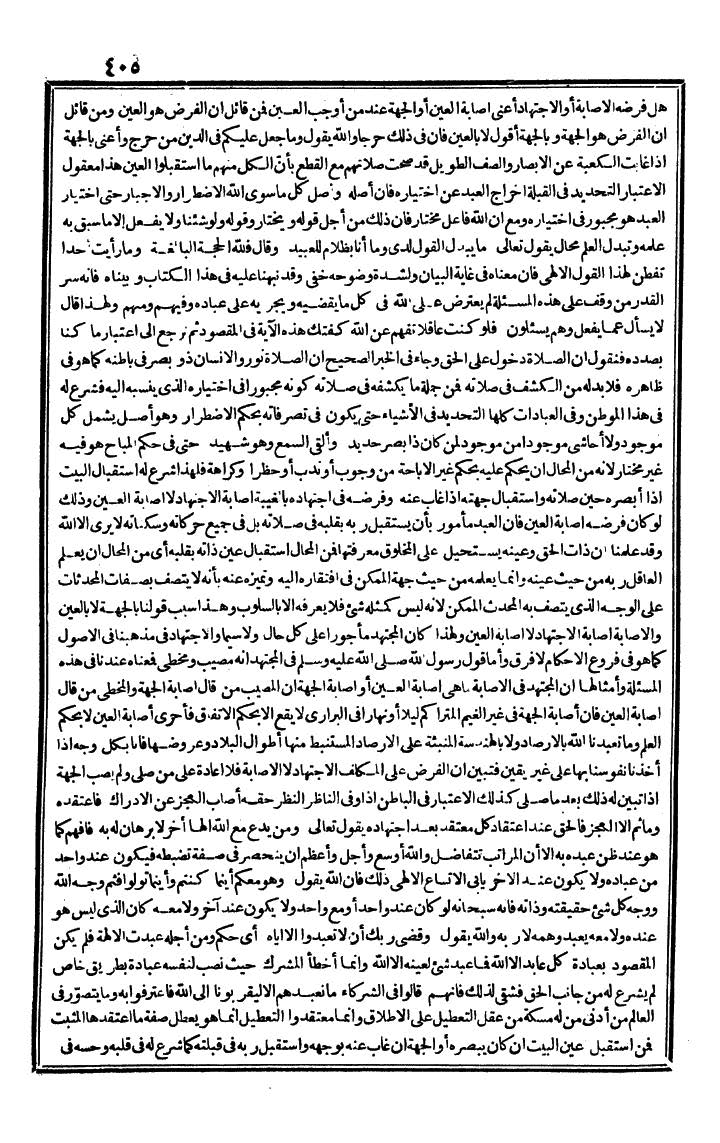 ٤٠٥
هل فرضه الاصابة أو الاجتهاد أعنى اصابة العين أو الجهة عند من أوجب العـين فمن قائل ان الفرض هو العين ومن قائل
ان الفرض هو الجهة وبالجهة أقول لا بالعين فان فى ذلك حرجا والله يقول وما جعل عليكم فى الدين من حرج وأعنى بالجهة
اذا غابت الكعبة عن الابصار والصف الطويل قد صحت صلاتهم مع القطع بأن الكل منهم ما استقبلوا العين هذا معقول
الاعتبار التحديد فى القبلة اخراج العبد عن اختياره فان أصله وأصل كل ما سوى الله الاضطرار والاجبار حتى اختيار
العبد هو مجبور فى اختياره ومع ان الله فاعل مختار فان ذلك من أجل قوله ويختار وقوله ولو شئنا ولا يفعل الا ما سبق به
علمه وتبدل العلم محال يقول تعالى ما يبدل القول لدى وما أنا بظلام للعبيد وقال فلله الحجة البالغة وما رأيت أحدا
تفطن لهذا القول الالهى فان معناه فى غاية البيان ولشدة وضوحه خفى وقد نبهنا عليه فى هذا الكتاب وبيناه فانه سر
القدر من وقف على هذه المسئلة لم يعترض على الله فى كل ما يقضيه ويجريه على عباده وفيهم ومنهم ولهذا قال
لا يسأل عما يفعل وهم يسئلون فلو كنت عاقلا تفهم عن الله كفتك هذه الآية فى المقصود ثم نرجع الى اعتبار ما كنا
بصدده فنقول ان الصلاة دخول على الحق وجاء فى الخبر الصحيح ان الصلاة نور والانسان ذو بصر فى باطنه كما هو فى
ظاهره فلا بد له من الكشف فى صلاته فمن جملة ما يكشفه فى صلاته كونه مجبورا فى اختياره الذى ينسبه اليه فشرع له
فى هذا الموطن وفى العبادات كلها التحديد فى الأشياء حتى يكون فى تصرفاته بحكم الاضطرار وهو أصل يشمل كل
موجود ولا أحاشى موجودا من موجود لمن كان ذا بصر حديد وألقى السمع وهو شهيد حتى فى حكم المباح هو فيه
غير مختار لانه من المحال ان يحكم عليه بحكم غير الاباحة من وجوب أو ندب أو حظر أو كراهة فلهذا شرع له استقبال البيت
اذا أبصره حين صلاته واستقبال جهته اذا غاب عنه وفرضه فى اجتهاده بالغيبة اصابة الاجتهاد لا اصابة العـين وذلك
لو كان فرضه اصابة العين فان العبد مأمور بأن يستقبل ربه بقلبه فى صلاته بل فى جميع حركاته وسكناته لا يرى الا الله
وقد علمنا ان ذات الحق وعينه يستحيل على المخلوق معرفتها فمن المحال استقبال عين ذاته بقلبه أى من المحال ان يعلم
العاقل ربه من حيث عينه وانما يعلمه من حيث جهة الممكن فى افتقاره اليه وتميزه عنه بأنه لا يتصف بصفات المحدثات
على الوجه الذى يتصف به المحدث الممكن لانه ليس كمثله شئ فلا يعرفه الا بالسلوب وهذا سبب قولنا بالجهة لا بالعين
والاصابة اصابة الاجتهاد لا اصابة العين ولهذا كان المجتهد مأجورا على كل حال ولا سيما والاجتهاد فى مذهبنا فى الاصول
كما هو فى فروع الاحكام لا فرق وأما قول رسول الله صلى الله عليه وسلم فى المجتهد انه مصيب ومخطئ فمعناه عندنا فى هذه
المسئلة وأمثالها ان المجتهد فى الاصابة ما هى اصابة العـين أو اصابة الجهة ان المصيب من قال اصابة الجهة والمخطئ من قال
اصابة العين فان أصابة الجهة فى غير الغيم المتراكم ليلا أو نهارا فى البرارى لا يقع الا بحكم الاتفاق فأحرى أصابة العين لا بحكم
العلم وما تعبدنا الله بالارصاد ولا بالهندسة المنبئة على الارصاد المستنبط منها أطوال البلاد وعروضها فانا بكل وجه اذا
أخذنا نفوسنا بها على غير يقين فتبين ان الفرض على المكلف الاجتهاد لا الاصابة فلا اعادة على من صلى ولم يصب الجهة
اذا تبين له ذلك بعد ما صلى كذلك الاعتبار فى الباطن اذا وفى الناظر النظر حقه أصاب العجز عن الادراك فاعتقده
وما ثم الا العجز فالحق عند اعتقاد كل معتقد بعد اجتهاده يقول تعالى ومن يدع مع الله الها آخر لا برهان له به فافهم كما
هو عند ظن عبده به الا أن المراتب تتفاضل والله أوسع وأجل وأعظم ان ينحصر فى صفة تضبطه فيكون عند واحد
من عباده ولا يكون عند الآخر يأبى الاتساع الالهى ذلك فان الله يقول وهو معكم أينما كنتم وأينما تولوا فثم وجه الله
ووجه كل شئ حقيقته وذاته فانه سبحانه لو كان عند واحد أو مع واحد ولا يكون عند آخر ولا معه كان الذى ليس هو
عنده ولا معه يعبد وهمه لا ربه والله يقول وقضى ربك أن لا تعبدوا الا اياه أى حكم ومن أجله عبدت الآلهة فلم يكن
المقصود بعبادة كل عابد الا الله فما عبد شئ لعينه الا الله وانما أخطأ المشرك حيث نصب لنفسه عبادة بطريق خاص
لم يشرع له من جانب الحق فشقى لذلك فانهم قالوا فى الشركاء ما نعبدهم الا ليقربونا الى الله فاعترفوا به وما يتصور فى
العالم من أدنى من له مسكة من عقل التعطيل على الاطلاق وانما معتقدوا التعطيل انما هو يعطل صفة ما اعتقدها المثبت
فمن استقبل عين البيت ان كان يبصره أو الجهة ان غاب عنه بوجهه واستقبل ربه فى قبلته كما شرع له فى قلبه وحسه فى